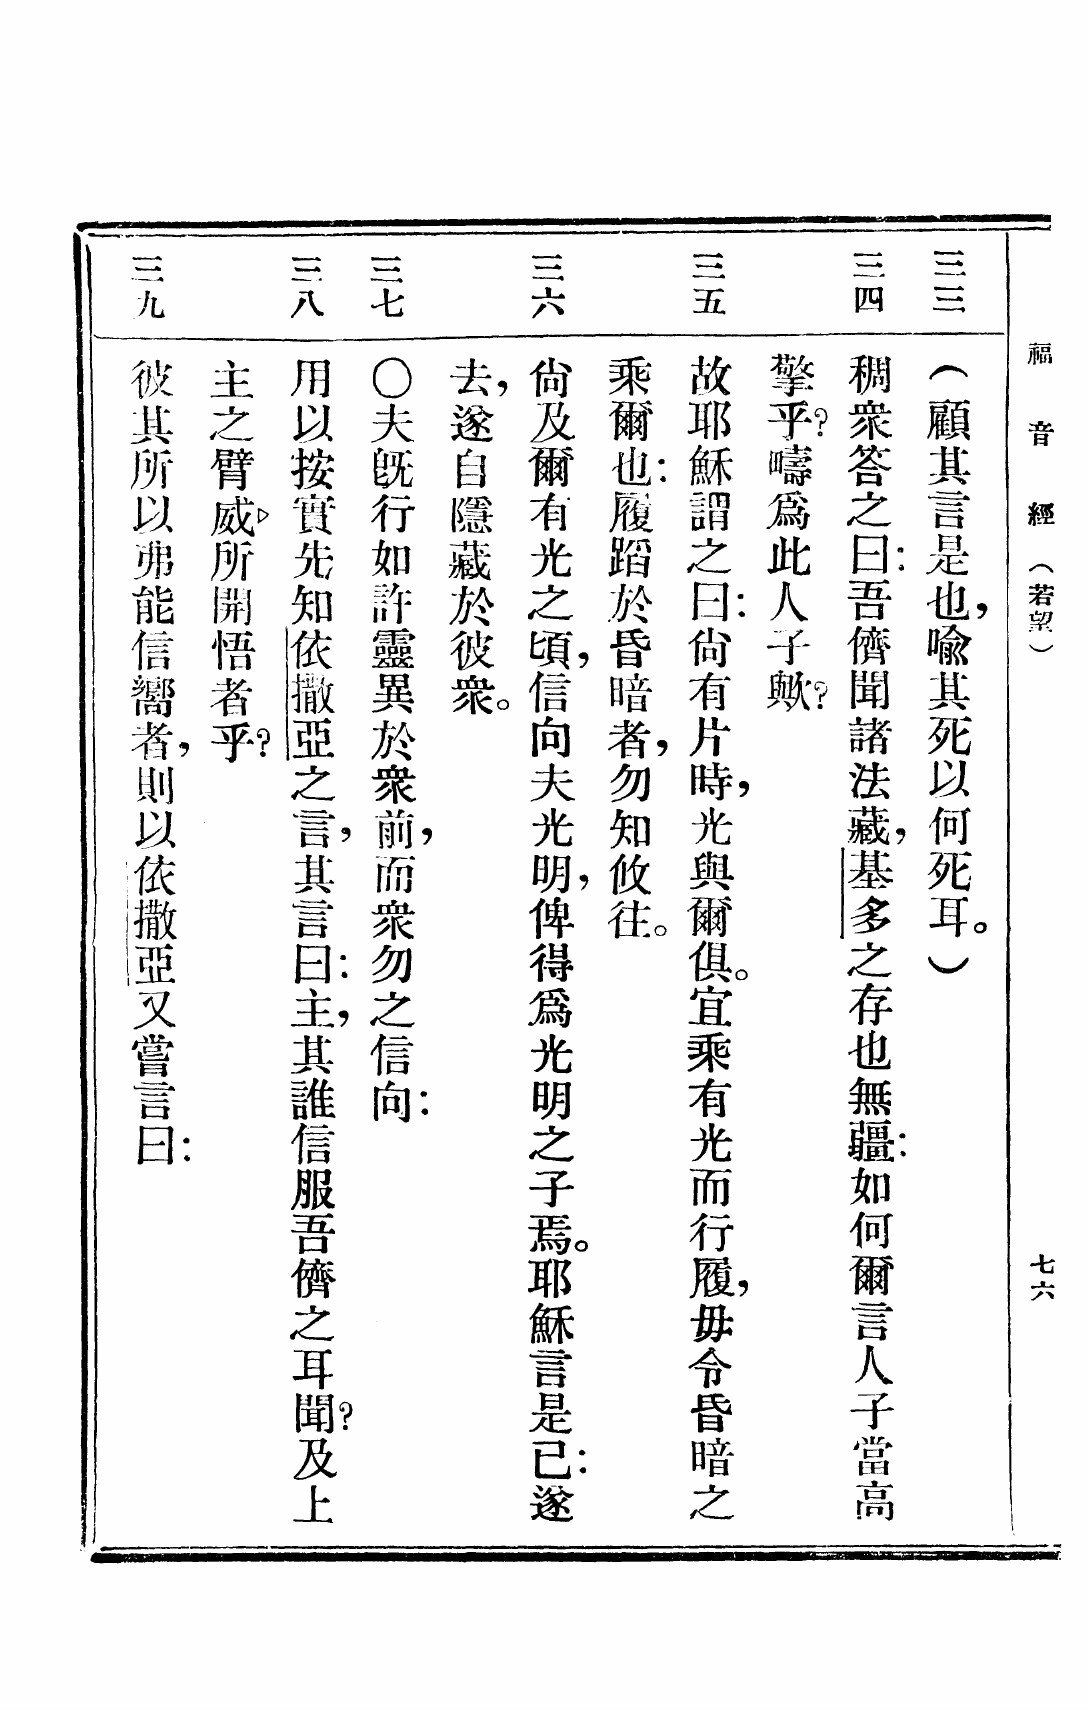 福音經（若望） 七六
三三 （顧其言是也，喩其死以何死耳。）
三四 稠衆答之曰：吾儕聞諸法藏，基多之存也無疆：如何爾言人子當高
擎乎？疇爲此人子歟？
三五 故耶穌謂之曰：尙有片時，光與爾俱。宜乘有光而行履，毋令昏暗之
乘爾也：履蹈於昏暗者，勿知攸往。
三六 尙及爾有光之頃，信向夫光明，俾得爲光明之子焉。耶穌言是已：遂
去，遂自隱藏於彼衆。
三七 〇夫旣行如許靈異於衆前，而衆勿之信向：
三八 用以按實先知依撒亞之言，其言曰：主，其誰信服吾儕之耳聞？及上
主之臂威所開悟者乎？
三九 彼其所以弗能信嚮者，則以依撒亞又嘗言曰：